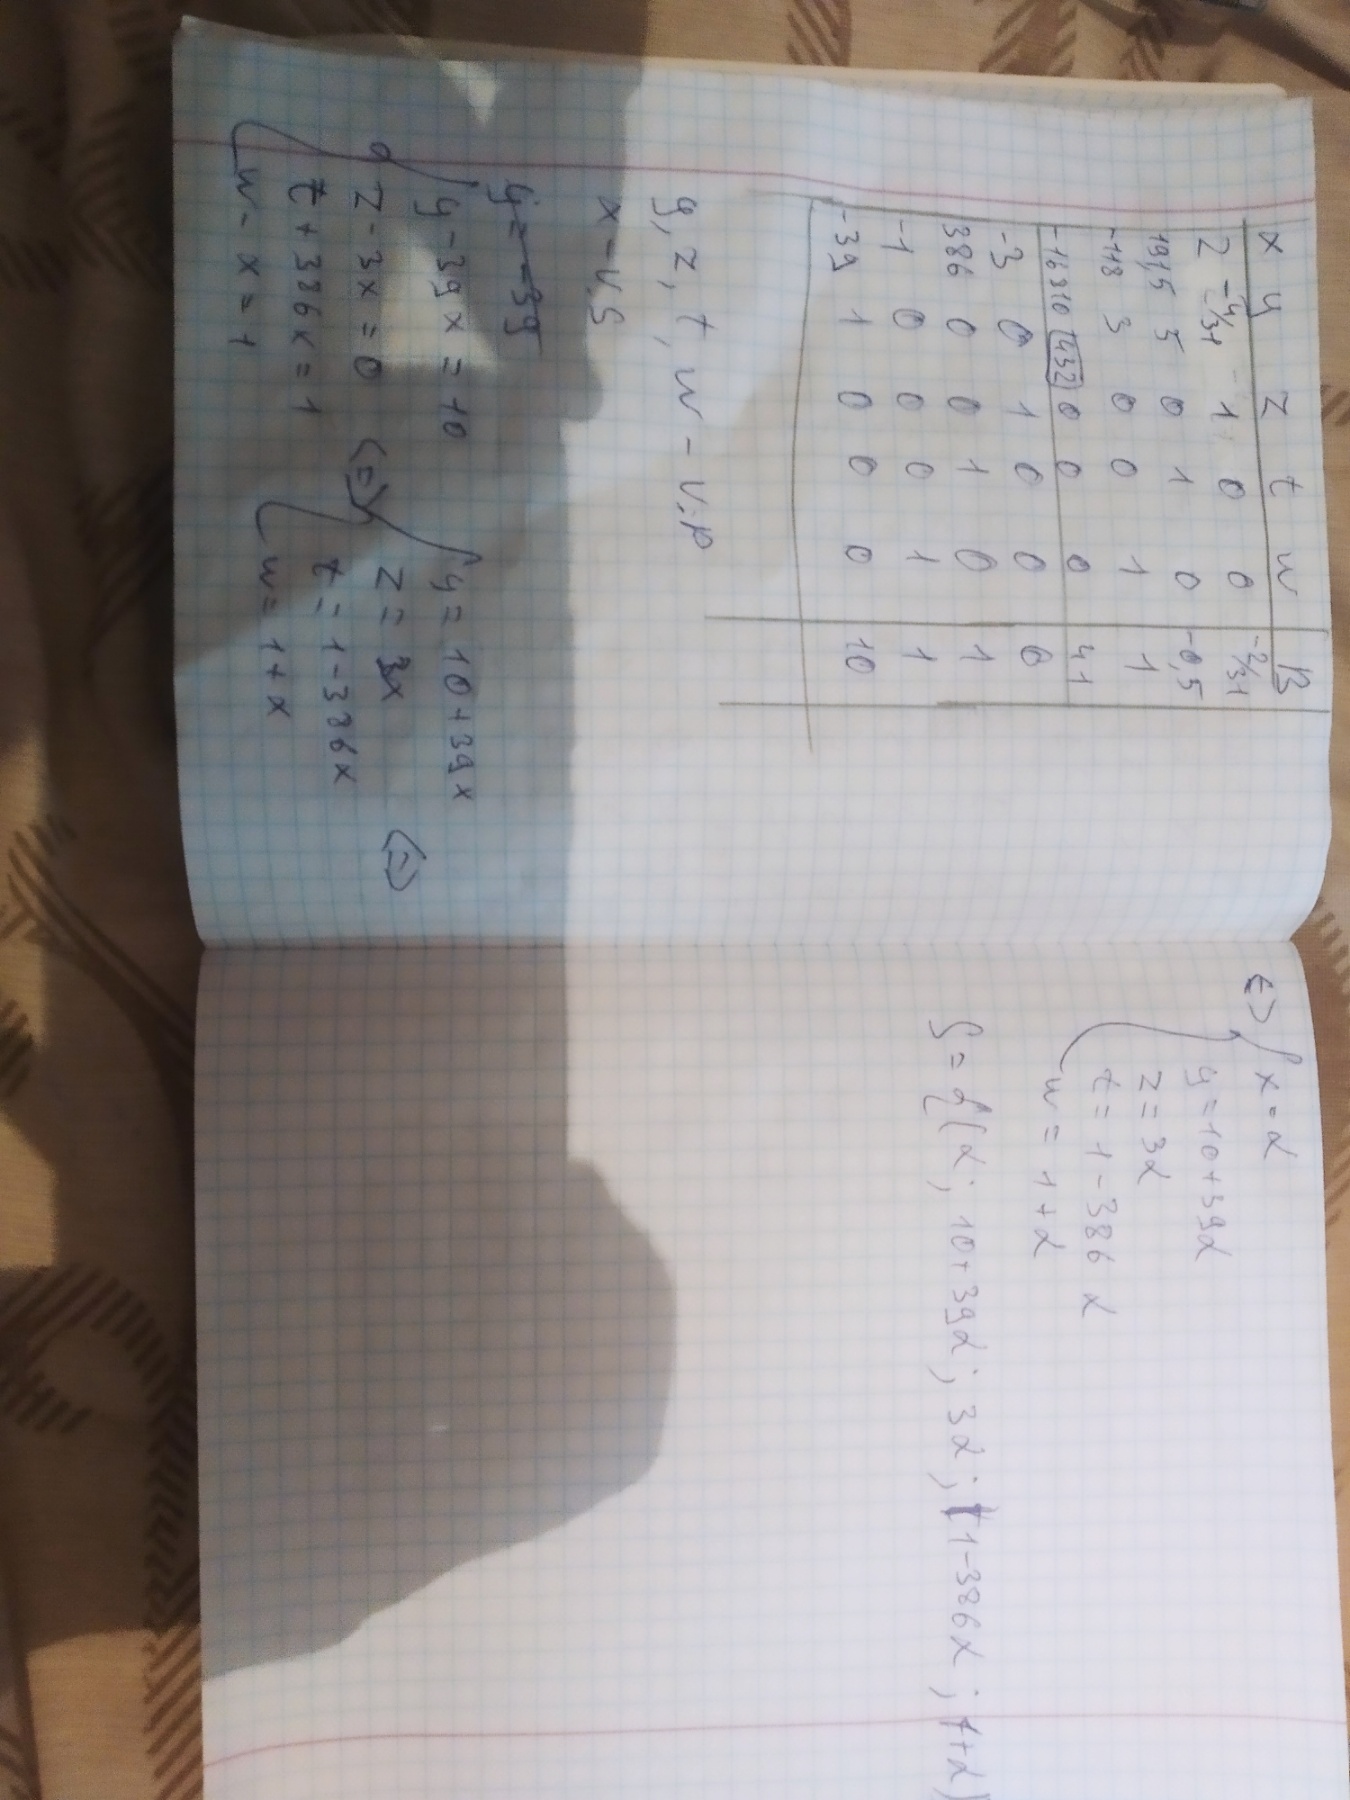 x y z t w B
2 -4/31 1 0 0 -2/31
19,5 5 0 1 0 -0,5
-118 3 0 0 1 1
-16310 432 0 0 0 41
-3 0 1 0 0 0
386 0 0 1 0 1
-1 0 0 0 1 1
-39 1 0 0 0 10
y, z, t, w - v.p
x - v.s
y = -39
{ y - 39x = 10
z - 3x = 0
t + 386x = 1
w - x = 1
<=> { y = 10 + 39x
z = 3x
t = 1 - 386x
w = 1 + x
<=>
<=> { x = α
y = 10 + 39α
z = 3α
t = 1 - 386α
w = 1 + α
S = {(α; 10+39α; 3α; 1-386α; 1+α)